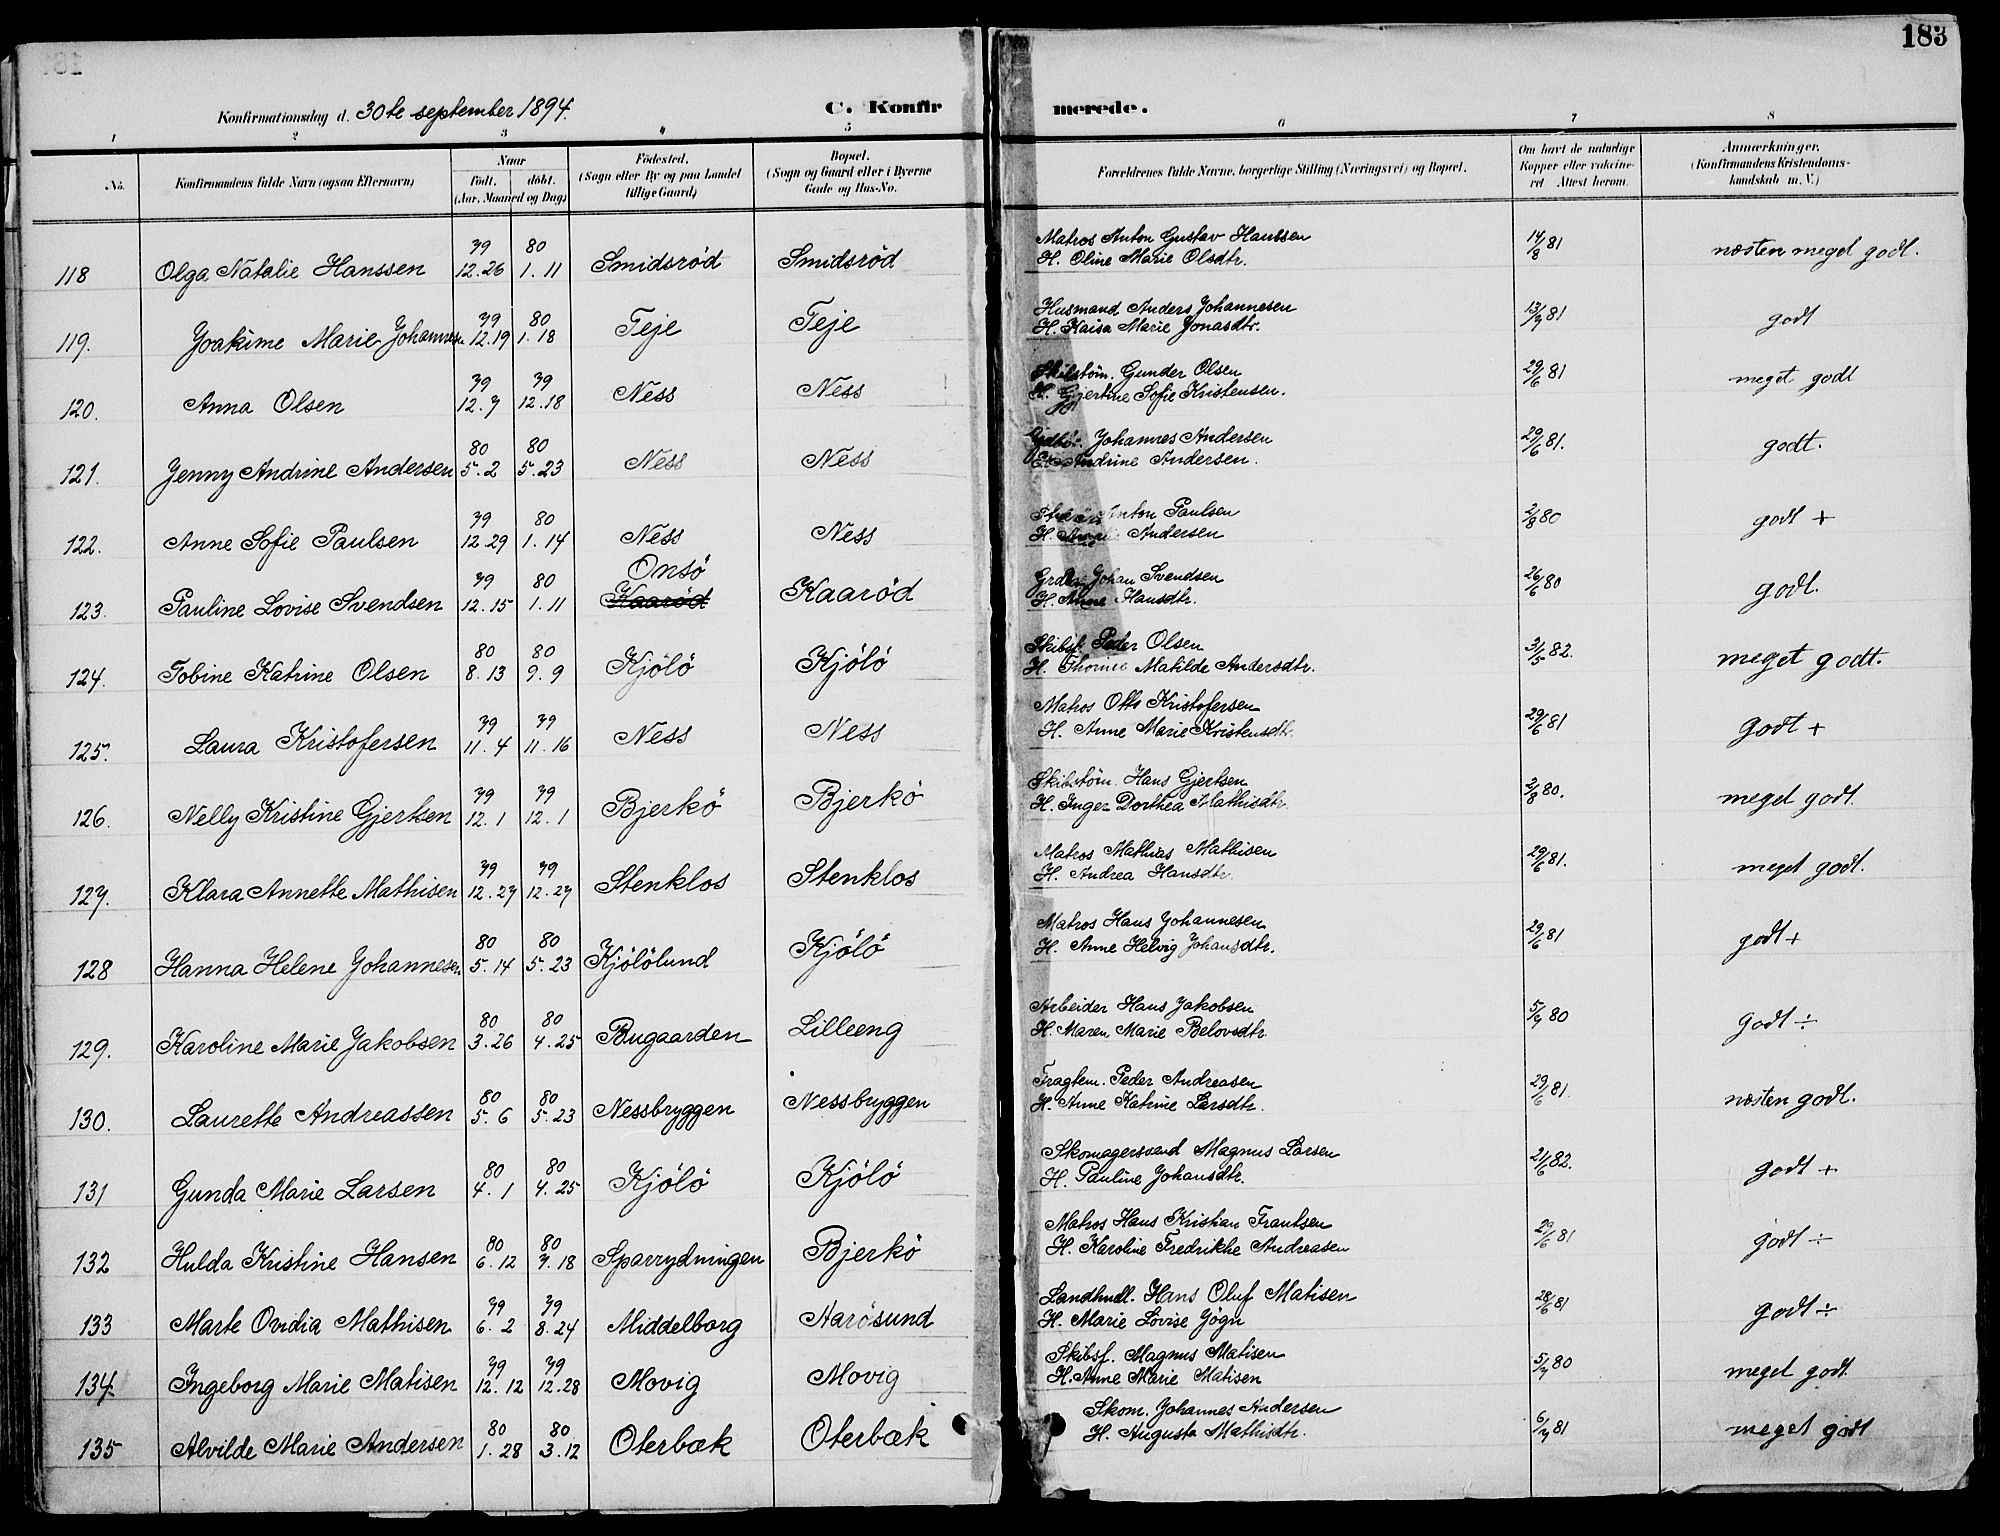 183
Konfirmationsdag d. 30te september 1894.
C. Konfirmerede.
1 2 3 4 5 6 7 8
No.
Konfirmandens fulde Navn (ogsaa Efternavn)
Naar
födt. döbt.
(Aar, Maaned og Dag)
Födested.
(Sogn eller By og paa Landet
tillige Gaard)
Bopæl.
(Sogn og Gaard eller i Byerne
Gade og Hus-No.
Forældrenes fulde Navne, borgerlige Stilling (Næringsvei) og Bopæl.
Om havt de naturlige
Kopper eller vakcine-
ret Attest herom.
Anmærkninger.
(Konfirmandens Kristendoms-
kundskab m. V.)
118 Olga Natalie Hanssen 79 12.26 80 1.11 Smidsröd Smidsröd
Matros Anton Gustav Hanssen
H. Oline Marie Olsdtr. 14/8 81 næsten meget godt.
119. Joakime Marie Johannesen 79 12.19 80 1.18 Teje Teje
Husmand Anders Johannesen
H. Kaisa Marie Jonasdtr. 13/7 81 godt
120. Anna Olsen 79 12.7 79 12.18 Ness Ness
Skibstöm. Gunder Olsen
H. Gjertine Sofie Kristensen. 29/6 81 meget godt
121. Jenny Andrine Andersen 80 5.2 80 5.23 Ness Ness
Johannes Andersen
Andrine Andersen. 29/6 81. godt.
122. Anne Sofie Paulsen 79 12.29 80 1.14 Ness Ness
Anton Paulsen
H. Andersen 2/8 80 godt +
123. Pauline Lovise Svendsen 79 12.15 80 1.11 Onsö Kaaröd Kaaröd
Johan Svendsen
H. Anne Hansdtr. 26/6 80 godt.
124. Tobine Katrine Olsen 80 8.13 80 9.9 Kjölö Kjölö
Skibsf. Peder Olsen
H. Thorine Matilde Andersdtr. 31/5 82. meget godt.
125. Laura Kristofersen 79 11.4 79 11.16 Ness Ness
Matros Otto Kristofersen
H. Anne Marie Kristensdtr. 29/6 81 godt +
126. Nelly Kristine Gjertsen 79 12.1 79 12.1 Bjerkö Bjerkö
Skibstöm. Hans Gjertsen
H. Inger Dorthea Mathisdtr. 2/8 80. meget godt.
127. Klara Annette Mathisen 79 12.27 79 12.27 Stenklos Stenklos
Matros Mathias Mathisen
H. Andrea Hansdtr. 29/6 81. meget godt.
128 Hanna Helene Johannesen 80 5.14 80 5.23 Kjölölund Kjölö
Matros Hans Johannesen
H. Anne Helvig Johansdtr. 29/6 81 godt +
129. Karoline Marie Jakobsen 80 3.26 80 4.25 Bugaarden Lilleeng
Arbeider Hans Jakobsen
H. Maren Marie Belovsdtr. 5/7 80 godt ÷
130. Laurette Andreassen 80 5.6 80 5.23 Nessbryggen Nessbryggen
Fragtem. Peder Andreasen
H. Anne Katrine Larsdtr. 29/6 81. næsten godt.
131 Gunda Marie Larsen 80 4.1 80 4.25 Kjölö Kjölö
Skomagersvend Magnus Larsen
H. Pauline Johansdtr. 21/6 82. godt +
132 Hulda Kristine Hansen 80 6.12 80 7.18 Sparrydningen Bjerkö
Matros Hans Kristian Frantsen
H. Karoline Fredrikke Andreasen 29/6 81 godt ÷
133 Marte Ovidia Mathisen 79 6.2 79 8.24 Middelborg Aarösund
Landhndl. Hans Oluf Matisen
H. Marie Lovise Gögn 28/6 81 godt ÷
134. Ingeborg Marie Matisen 79 12.12 79 12.28 Movig Movig
Skibsf. Magnus Matisen
H. Anne Marie Matisen 5/7 80 meget godt.
135 Alvilde Marie Andersen 80 1.28 80 3.12 Oterbæk Oterbæk
Skom. Johannes Andersen
H. Augusta Mathisdtr. 6/7 81 meget godt